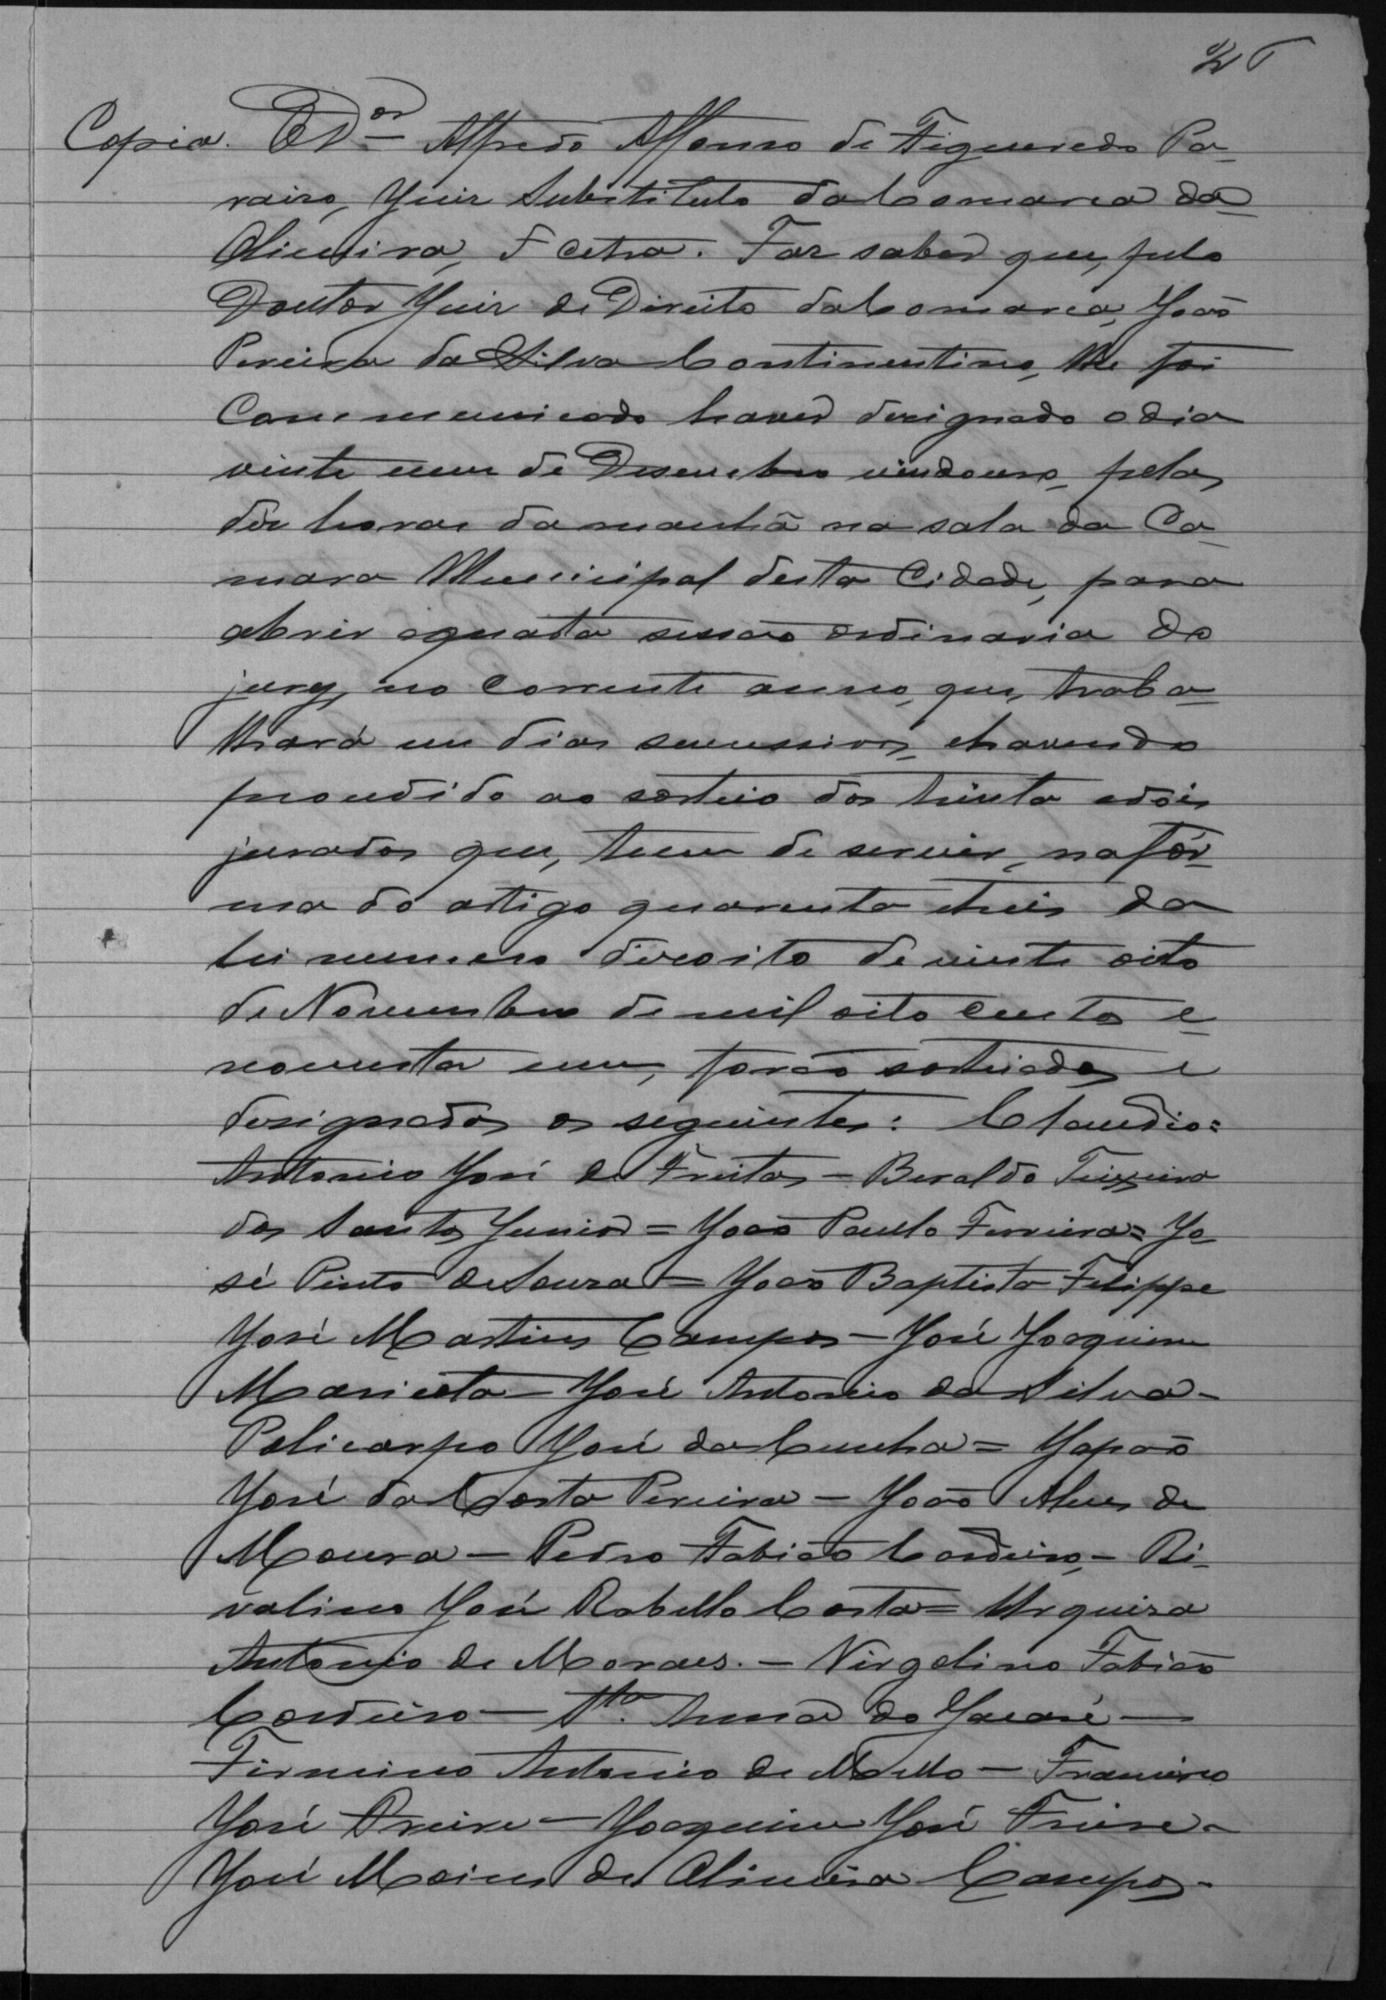 Copia. O Dor Alfredo Affonso de Figueredo Pa-
raizo, Juiz Substituto da Comarca da
Oliveira, & cetra. Faz saber que, pelo
Doutor Juiz de Direito da Comarca, João
Pereira da Silva Continentino, lhe foi
Communicado haver designado o dia
vinte um de Desembro vindouro, pelas
dez horas da manhã na sala da Ca-
mara Municipal desta Cidade, para
abrir a quarta sessão ordinaria do
jury, no corrente anno, que, traba-
lhará em dias sucessivos, e havendo
procedido ao sorteio dos trinta e dois
jurados que, tem de servir, na fór-
ma do artigo quarenta e treis da
lei numero dezoito de vinte oito
de Novembro de mil oito centos e
noventa um, forão sorteados e
designados os seguintes: Claudio=
Antonio José de Freitas - Beraldo Teixeira
dos Santos Junior = João Paulo Ferreira = Jo-
sé Pinto de Souza = João Baptista Felippe
José Martins Campos - José Joaquim
Maricota - José Antonio da Silva -
Policarpo José da Cunha = Japão
José da Costa Pereira - João Alves de
Moura - Pedro Fabião Cordeiro, - Ri-
valino José Rabello Costa = Urquiza
Antonio de Moraes. - Virgolino Fabião
Cordeiro - Sta. Anna do Jacaré -
Firmino Antonio de Mello - Francisco
José Freire - Joaquim José Freire -
José de Oliveira Campos -